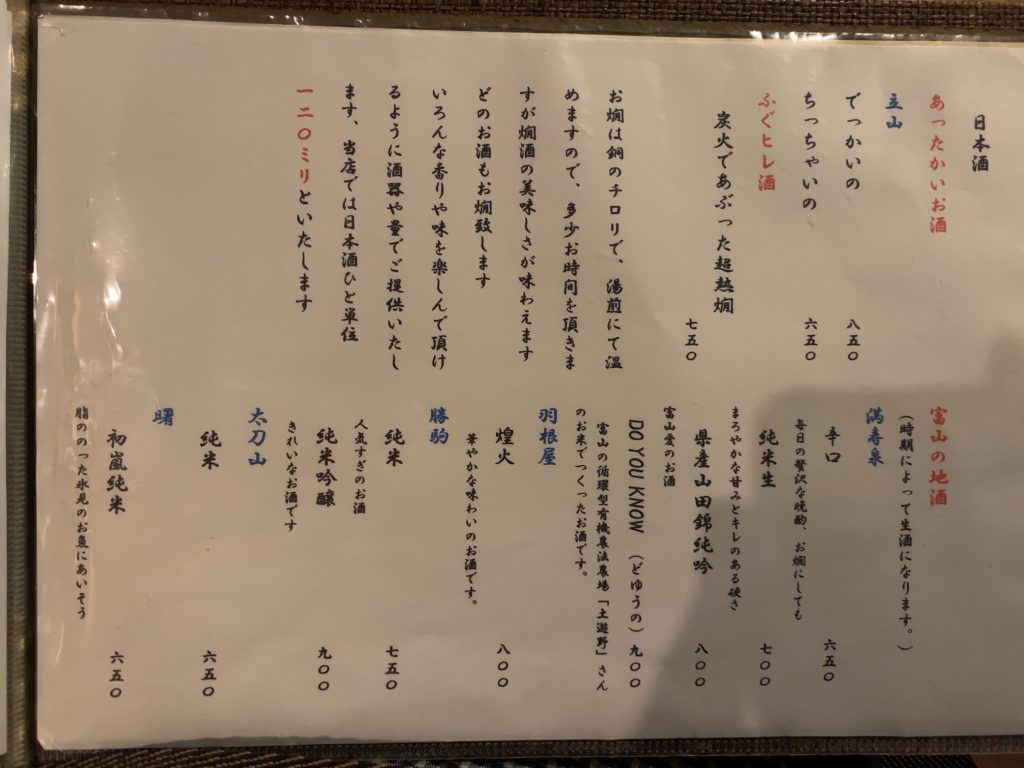 日本酒
あったかいお酒
立山
でっかいの 八五〇
ちっちゃいの 六五〇
ふぐヒレ酒
炭火であぶった超熱燗
七五〇
お燗は銅のチロリで、湯煎にて温
めますので、多少お時間を頂きま
すが燗酒の美味しさが味わえます
どのお酒もお燗致します
いろんな香りや味を楽しんで頂け
るように酒器や量でご提供いたし
ます、当店では日本酒ひと単位
一二〇ミリといたします
富山の地酒
（時期によって生酒になります。）
満寿泉
辛口 六五〇
毎日の贅沢な晩酌、お燗にしても
純米生 七〇〇
まろやかな甘みとキレのある硬さ
県産山田錦純吟 八〇〇
富山愛のお酒
DO YOU KNOW （どゆうの）九〇〇
富山の循環型有機農法農場「土遊野」さん
のお米でつくったお酒です。
羽根屋
煌火 八〇〇
華やかな味わいのお酒です。
勝駒
純米 七五〇
人気すぎのお酒
純米吟醸 九〇〇
きれいなお酒です
太刀山
純米 六五〇
曙
初嵐純米 六五〇
脂ののった氷見のお魚にあいそう